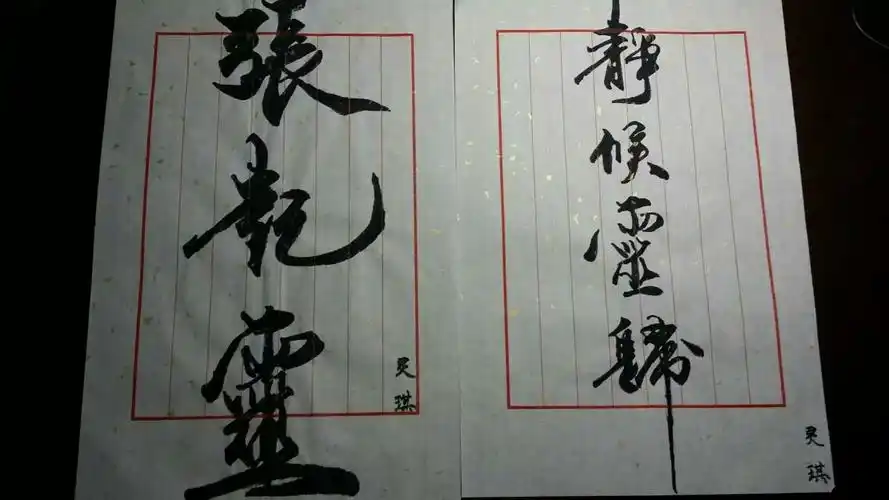 靜候靈歸
灵琪
張乾靈
灵琪